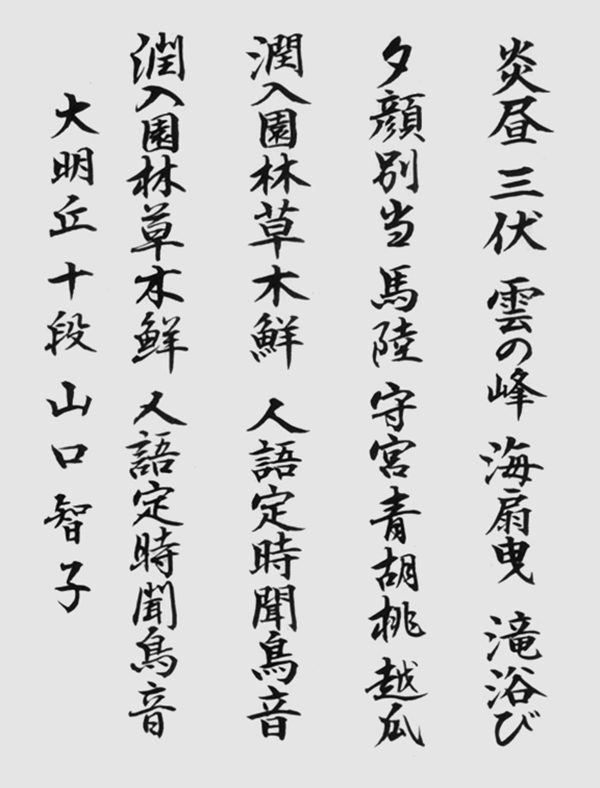 炎昼 三伏 雲の峰 海扇曳 滝浴び
夕顔別当 馬陸 守宮 青胡桃 越瓜
潤入園林草木鮮 人語定時聞鳥音
潤入園林草木鮮 人語定時聞鳥音
大明丘 十段 山口智子